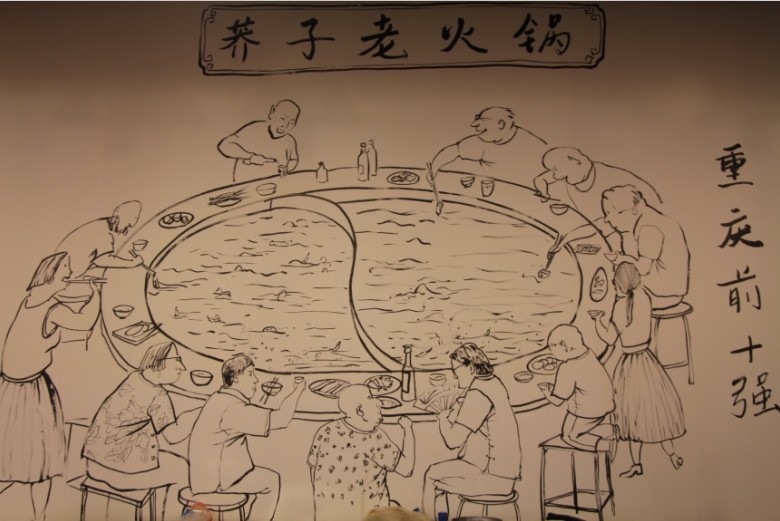 荞子老火锅
重庆前十强